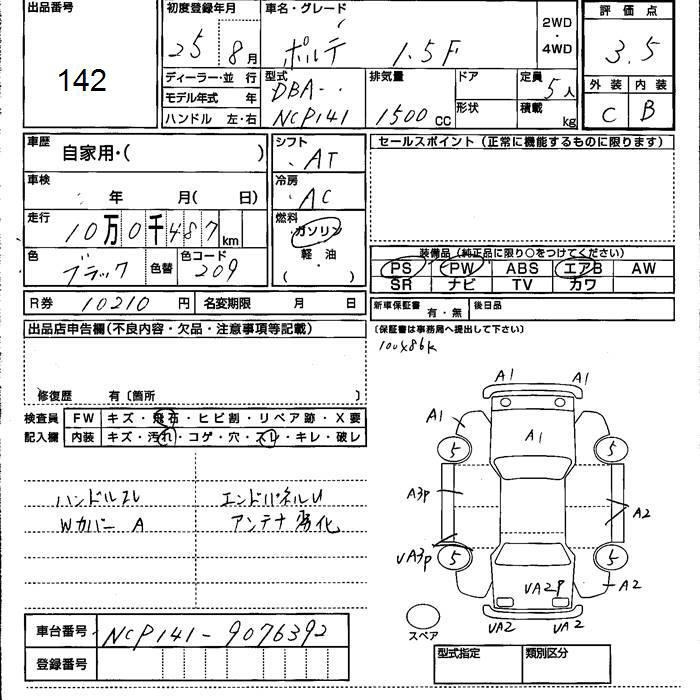 出品番号
142
初度登録年月
25 8月
車名・グレード
ポルテ 1.5F
2WD
・
4WD
評価点
3.5
外装 内装
C B
ディーラー・並 行
モデル年式 年
ハンドル 左・右
型式
DBA-
NCP141
排気量
1500 CC
ドア
形状
定員
5人
積載
kg
車歴
自家用・( )
車検
年 月( 日)
走行
10万0千487km
色
ブラック
色替
色コード
209
シフト
AT
冷房
AC
燃料
ガソリン
軽・油
( )
セールスポイント (正常に機能するものに限ります)
装備品 (純正品に限り○をつけてください)
PS PW ABS エアB AW
SR ナビ TV カワ
R券 10210 円 名変期限 月 日
新車保証書 有・無 後日品
(保証書は事務局へ提出して下さい)
100x86k
出品店申告欄(不良内容・欠品・注意事項等記載)
修復歴 有〔箇所 〕
検査員
記入欄
FW キズ・飛石・ヒビ割・リペア跡・X要
内装 キズ・汚れ・コゲ・穴・スレ・キレ・破レ
ハンドルスレ エンドパネルU
Wカバー A アンテナ劣化
A1 A1
A1
A1
5 5
A3P
A2
UA3P
5 5
UA2P
A2
UA2 UA2
スペア
車台番号 NCP141-9076392
登録番号
型式指定 類別区分